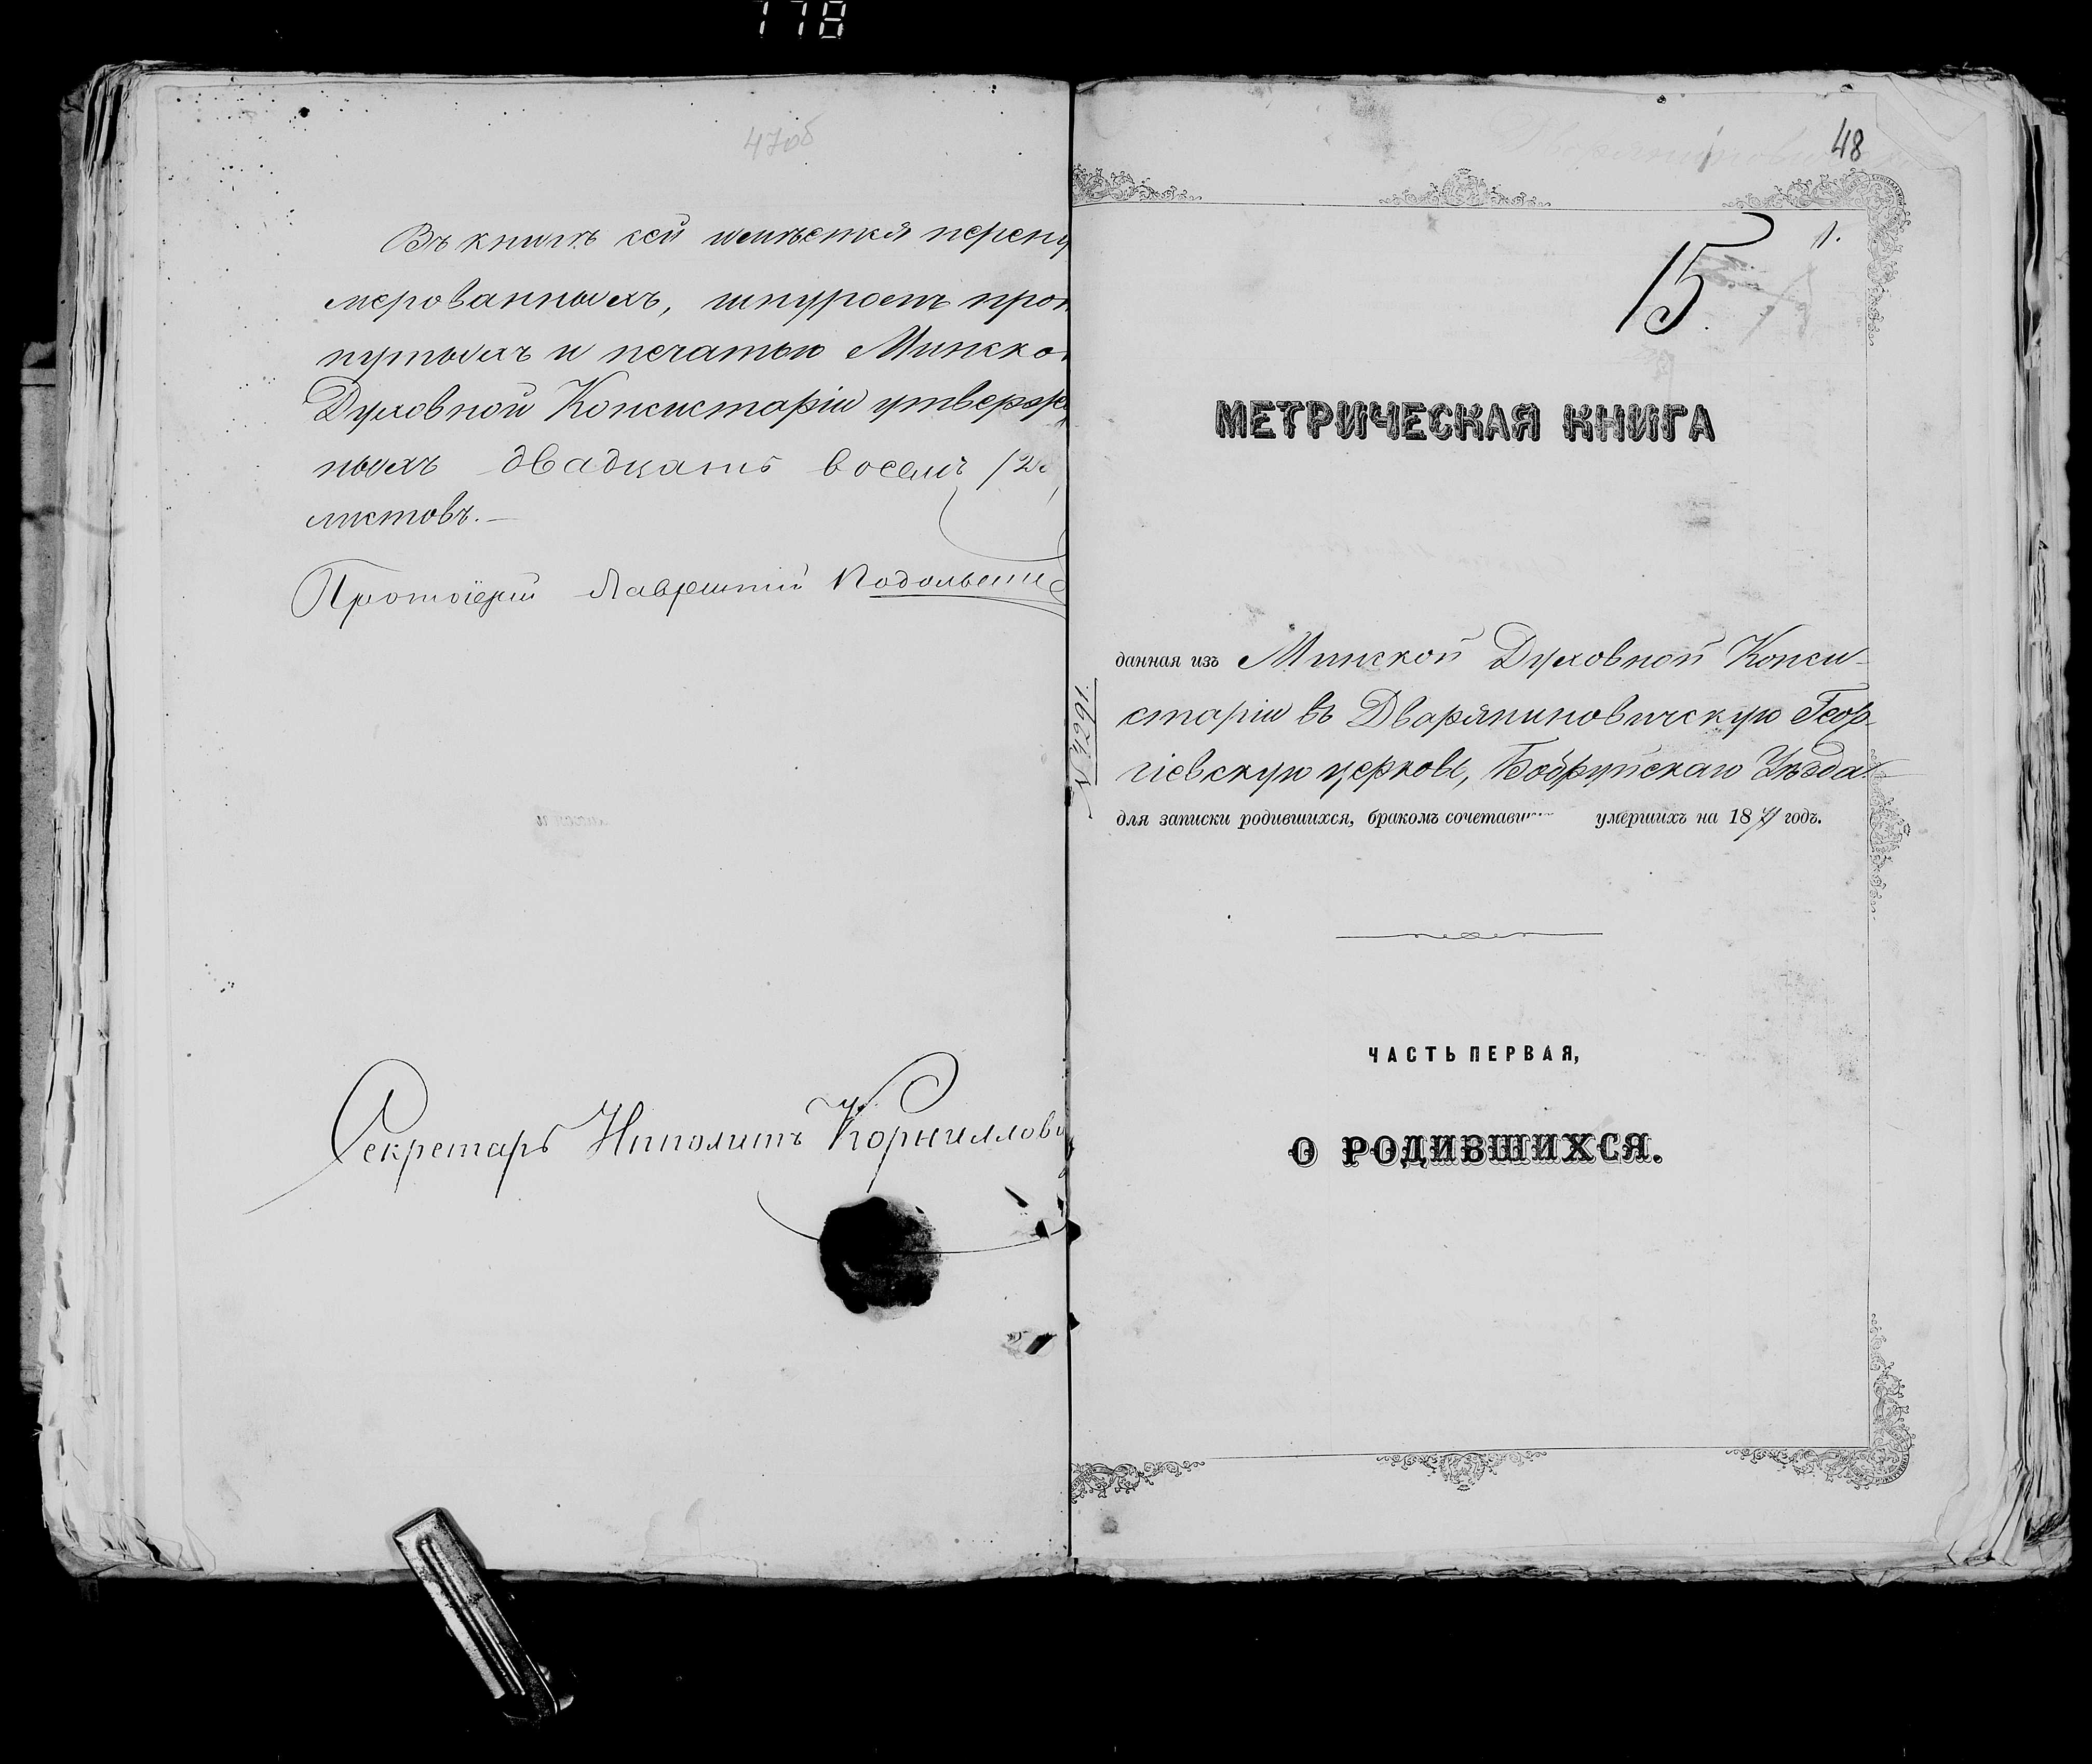 178
47об
Въ книгѣ сей имѣется перену
мерованныхъ, шнуромъ прон
нутыхъ и печатью Минско
Духовной Консисторіи утвержд
ныхъ двадцать восемь /2
листовъ.—
Протоіерей Лаврентій Подольскі
Секретарь Ипполитъ Корниллови
48
1.
15
МЕТРИЧЕСКАЯ КНИГА
данная изъ Минской Духовной Конси-
сторіи въ Дворяниновичскую Геор-
гіевскую церковь, Бобруйскаго Уѣзда
№ 4291.
для записки родившихся, бракомъ сочетавш умершихъ на 18 годъ.
ЧАСТЬ ПЕРВАЯ,
О РОДИВШИХСЯ.